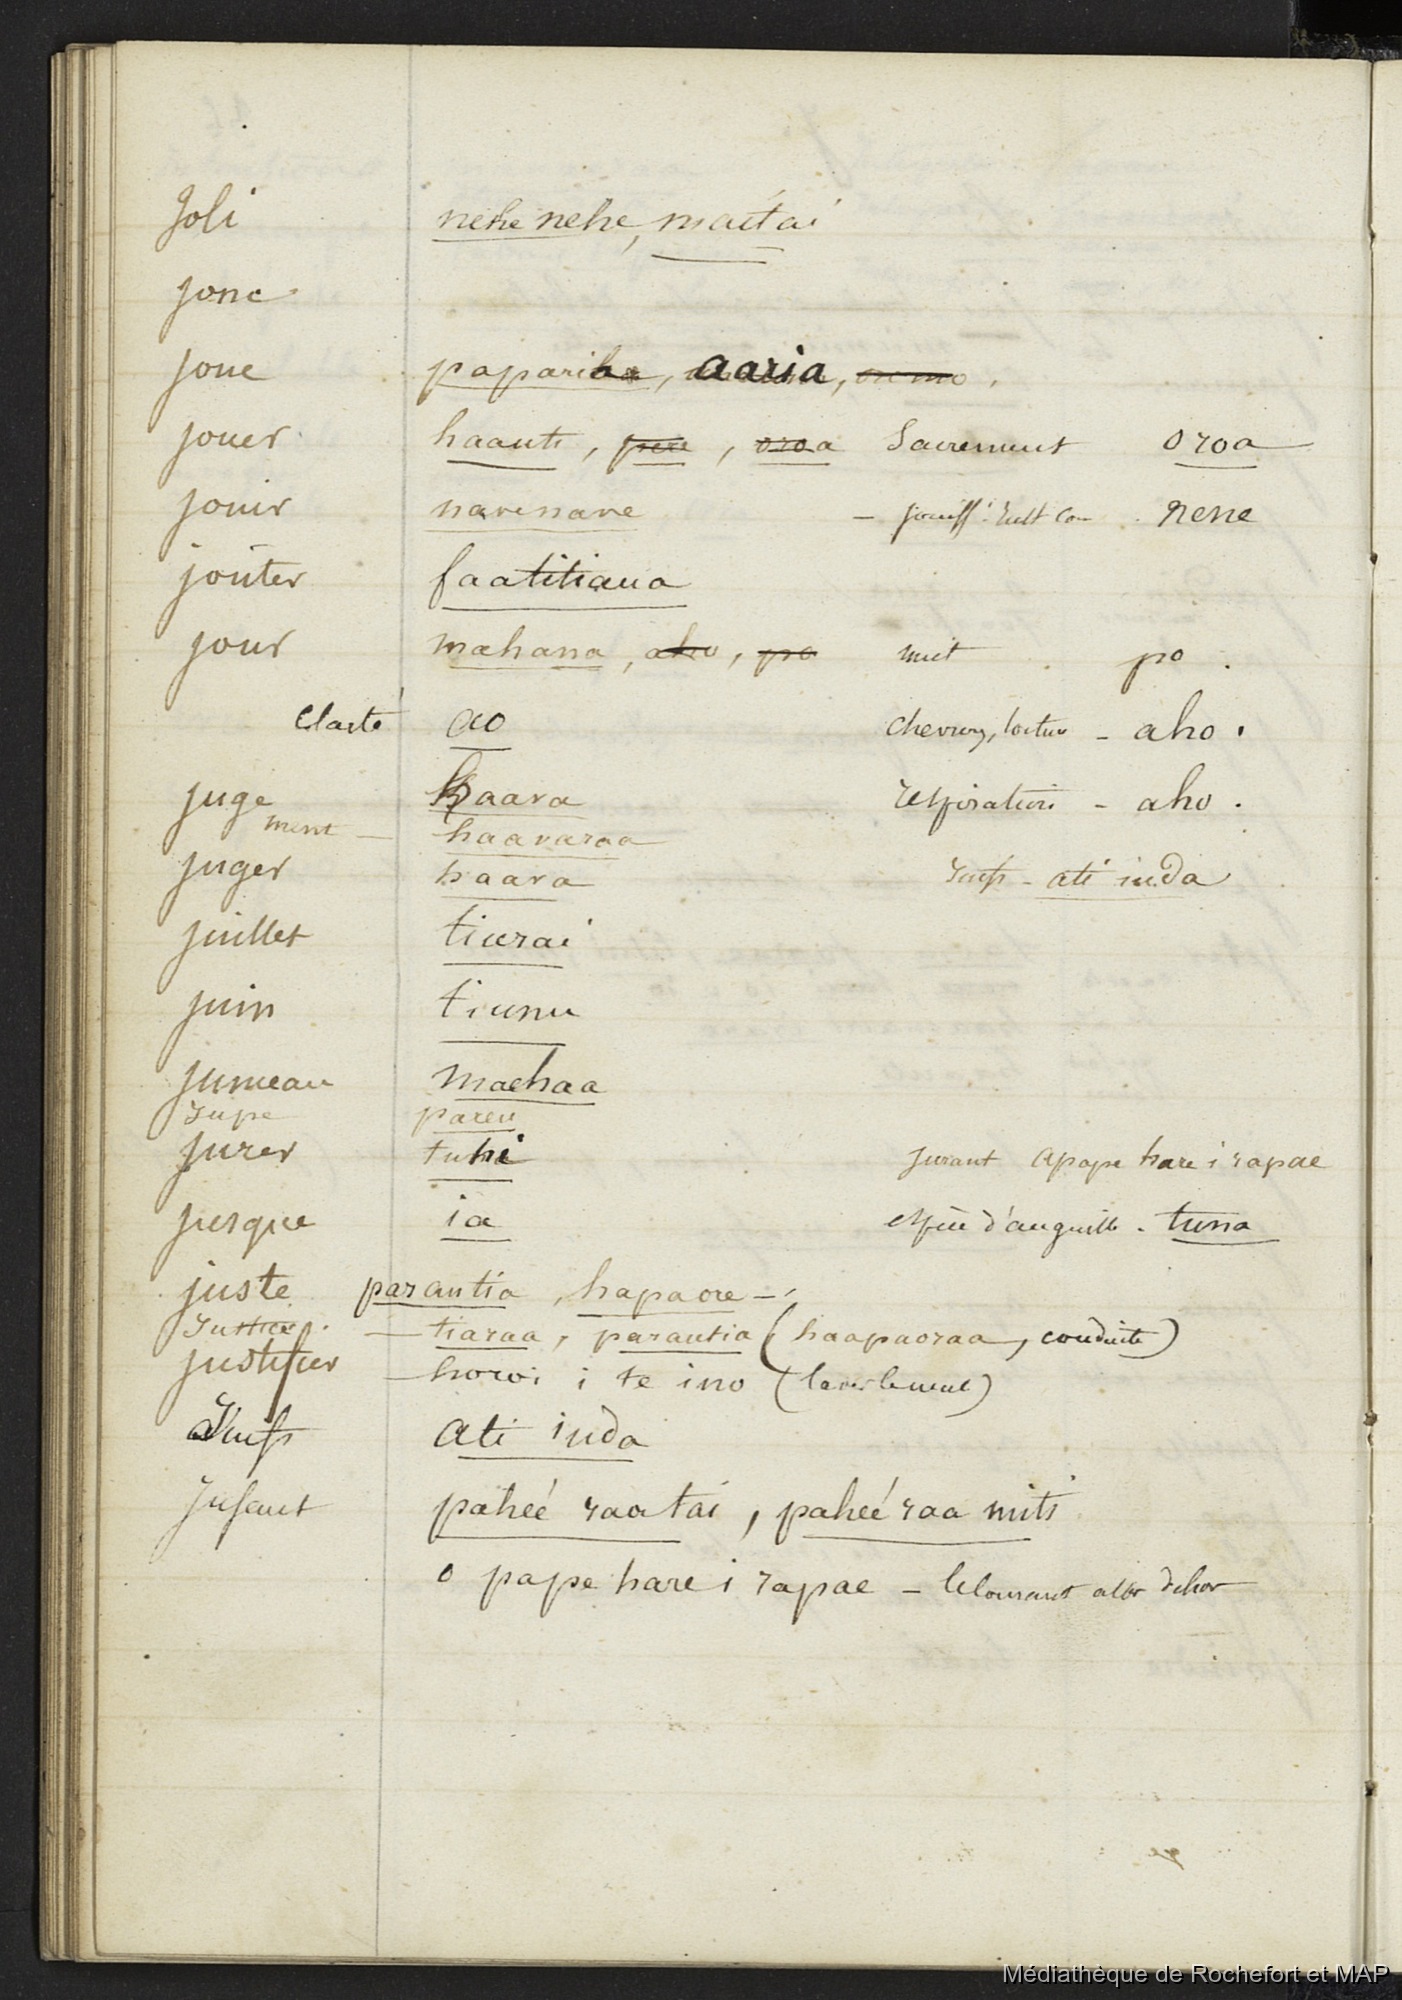 Joli nehe nehe, maitai
jonc
joue papariha, aaria,
jouer haauti, pere, oroa Sacrement oroa
jouir navenave - nene
joûter faatitiaua
jour mahana, aho, po nuit po.
Clarté ao aho.
juge haava respiration - aho.
ment - haavaraa
juger haava Juifs - ati iuda
juillet tiurai
juin tiunu
jumeau maehaa
Jupe pareu
jurer tuhi Jusant a pape hare i rapae
jusque ia d'anguille - tuna
juste parautia, hapaore -
Justice. - tiaraa, parautia (haapaoraa, conduite)
justifier - horoi i te ino
Juifs Ati iuda
Jusant paheé raa tai, paheé raa miti
o pape hare i rapae - dehors
Médiathèque de Rochefort et MAP